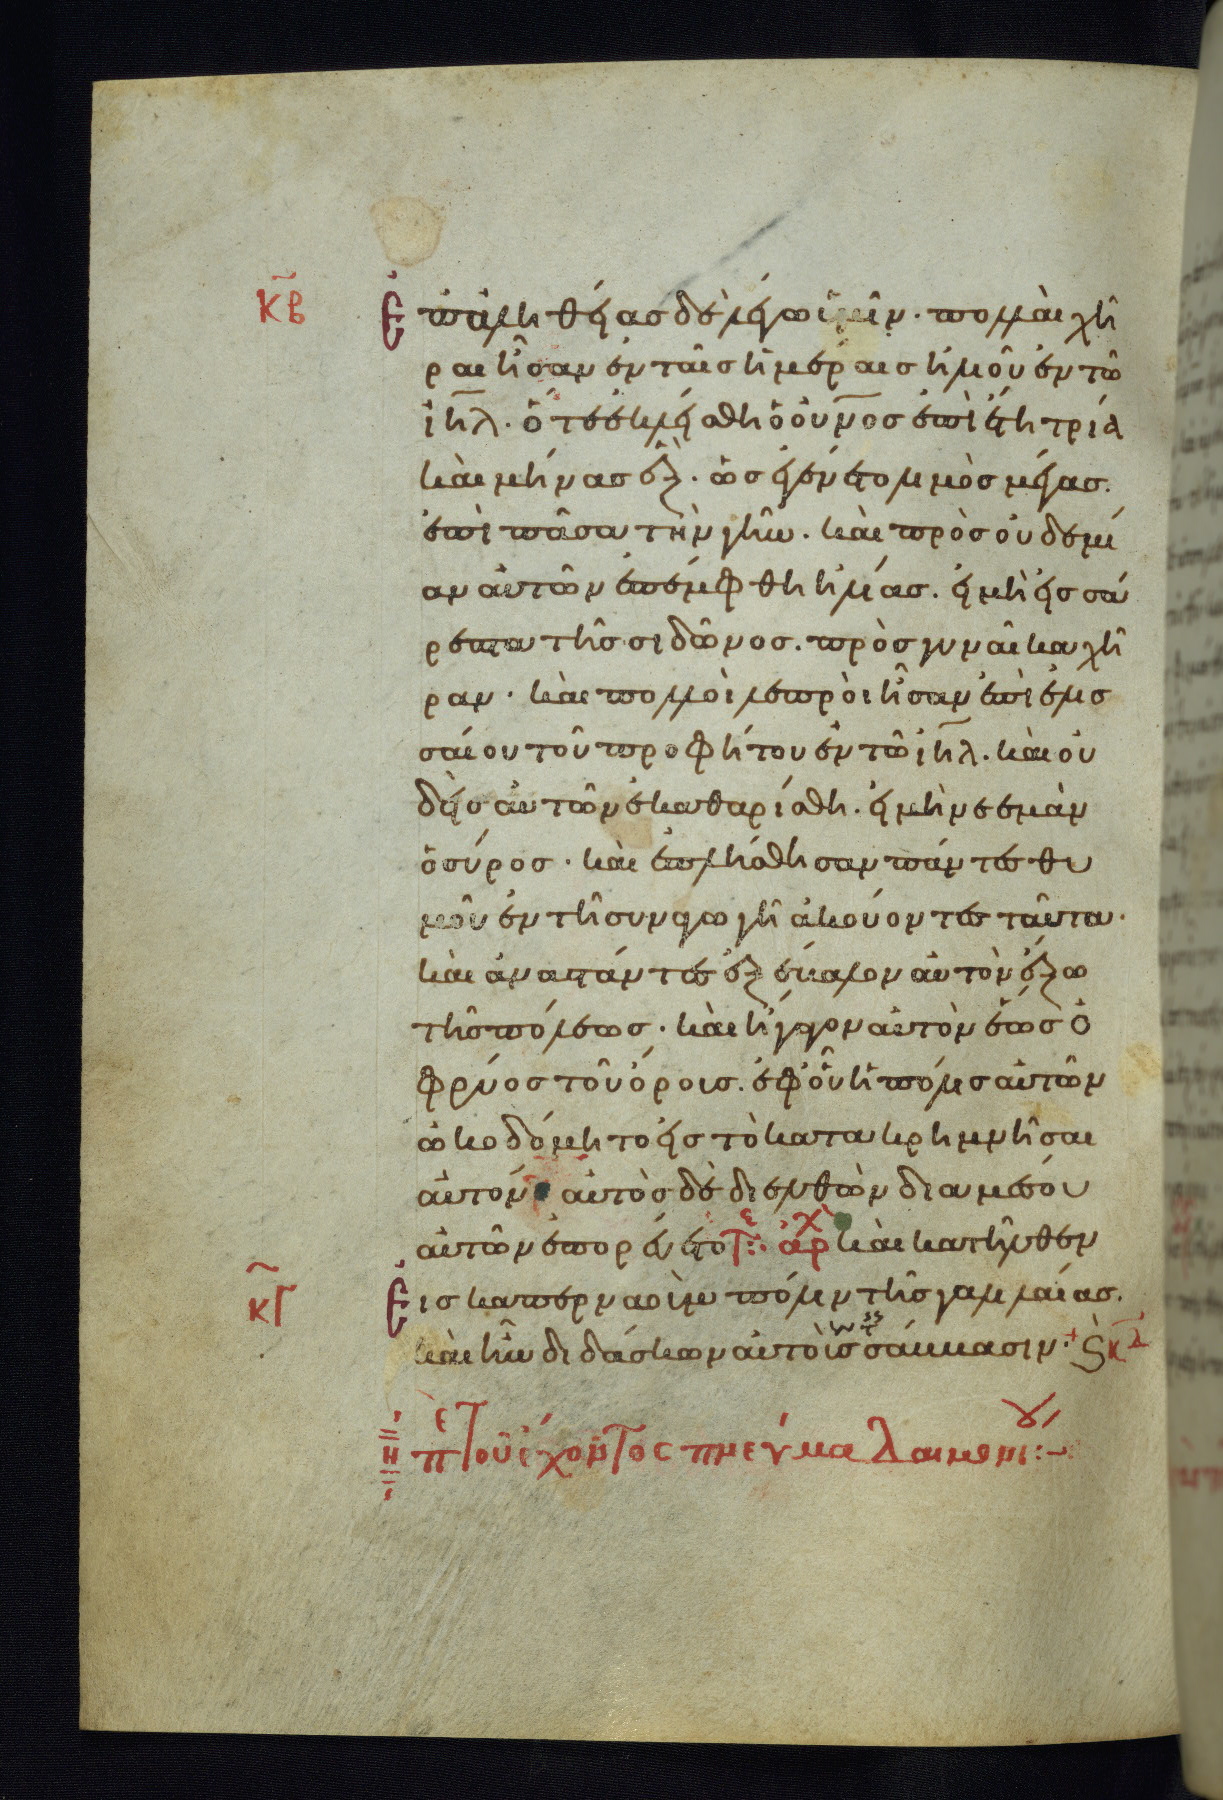 κβ Ἐπἀληθείασ δὲ λέγω ὑμῖν· πολλαὶ χῆ
ραι ἦσαν ἐν ταῖσ ἡμέραισ ἡλιοῦ ἐν τῶ
ἰηλ· ὅτε ἐκλείσθη ὁ οὐνοσ ἐπὶ ἔτη τρία
καὶ μῆνασ ἓξ· ὡσ ἐγένετο λιμὸσ μέγασ·
ἐπὶ πᾶσαν τὴν γῆν· καὶ πρὸσ οὐδεμί
αν αὐτῶν ἐπέμφθη ἡλίασ· εἰ μὴ εἰσ σά
ρεπτα τῆσ σιδῶνοσ· πρὸσ γυναῖκα χή
ραν· καὶ πολλοὶ λεπροὶ ἦσαν ἐπὶ ἐλισ
σαίου τοῦ προφήτου ἐν τῶ ἰηλ· καὶ οὐ
δεὶσ αὐτῶν ἐκαθαρίσθη· εἰ μὴ νεεμὰν
ὁ σύροσ· καὶ ἐπλήσθησαν πάντεσ θυ
μοῦ ἐν τῆ συναγωγῆ ἀκούοντεσ ταῦτα·
καὶ ἀναστάντεσ ἐξέβαλον αὐτὸν ἔξω
τῆσ πόλεωσ· καὶ ἤγαγον αὐτὸν ἕωσ ὀ
φρύοσ τοῦ ὄρουσ· ἐφ οὗ ἡ πόλισ αὐτῶν
ὠκοδόμητο εἰσ τὸ κατακρημνῆσαι
αὐτόν· αὐτὸσ δὲ διελθὼν δια μέσου
αὐτῶν ἐπορεύετο τε ἀρχ καὶ κατῆλθεν
κγ Εἰσ καπερναοὺμ πόλιν τῆσ γαλιλαίασ·
καὶ ἦν διδάσκων αὐτοὺσ ἐν τοῖσ σάββασιν·
η πε τοῦ ἔχοντοσ πνεύμα δαιμονίου